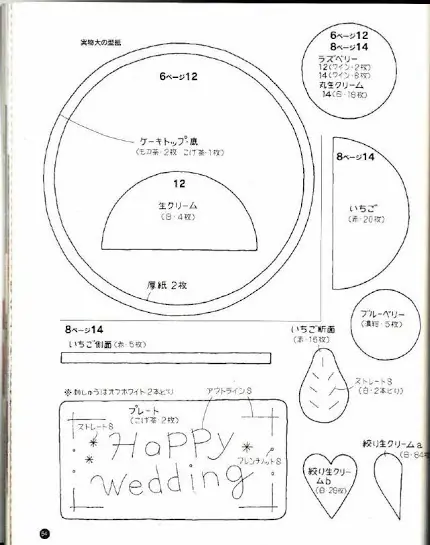 実物大の型紙
6ページ12
ケーキトップ・底
(モカ茶・2枚 こげ茶・1枚)
12
生クリーム
(白・4枚)
厚紙 2枚
6ページ12
8ページ14
ラズベリー
12(ワイン・2枚)
14(ワイン・8枚)
丸生クリーム
14(白・18枚)
8ページ14
いちご
(赤・20枚)
ブルーベリー
(濃紺・5枚)
8ページ14
いちご側面(赤・5枚)
いちご断面
(赤・16枚)
ストレートS
(白・2本どり)
※刺しゅうはオフホワイト2本どり
アウトラインS
プレート
(こげ茶・2枚)
ストレートS
HaPPy
wedding
フレンチノットS
絞り生クリームa
(白・84枚
絞り生クリー
ムb
(白・28枚)
64